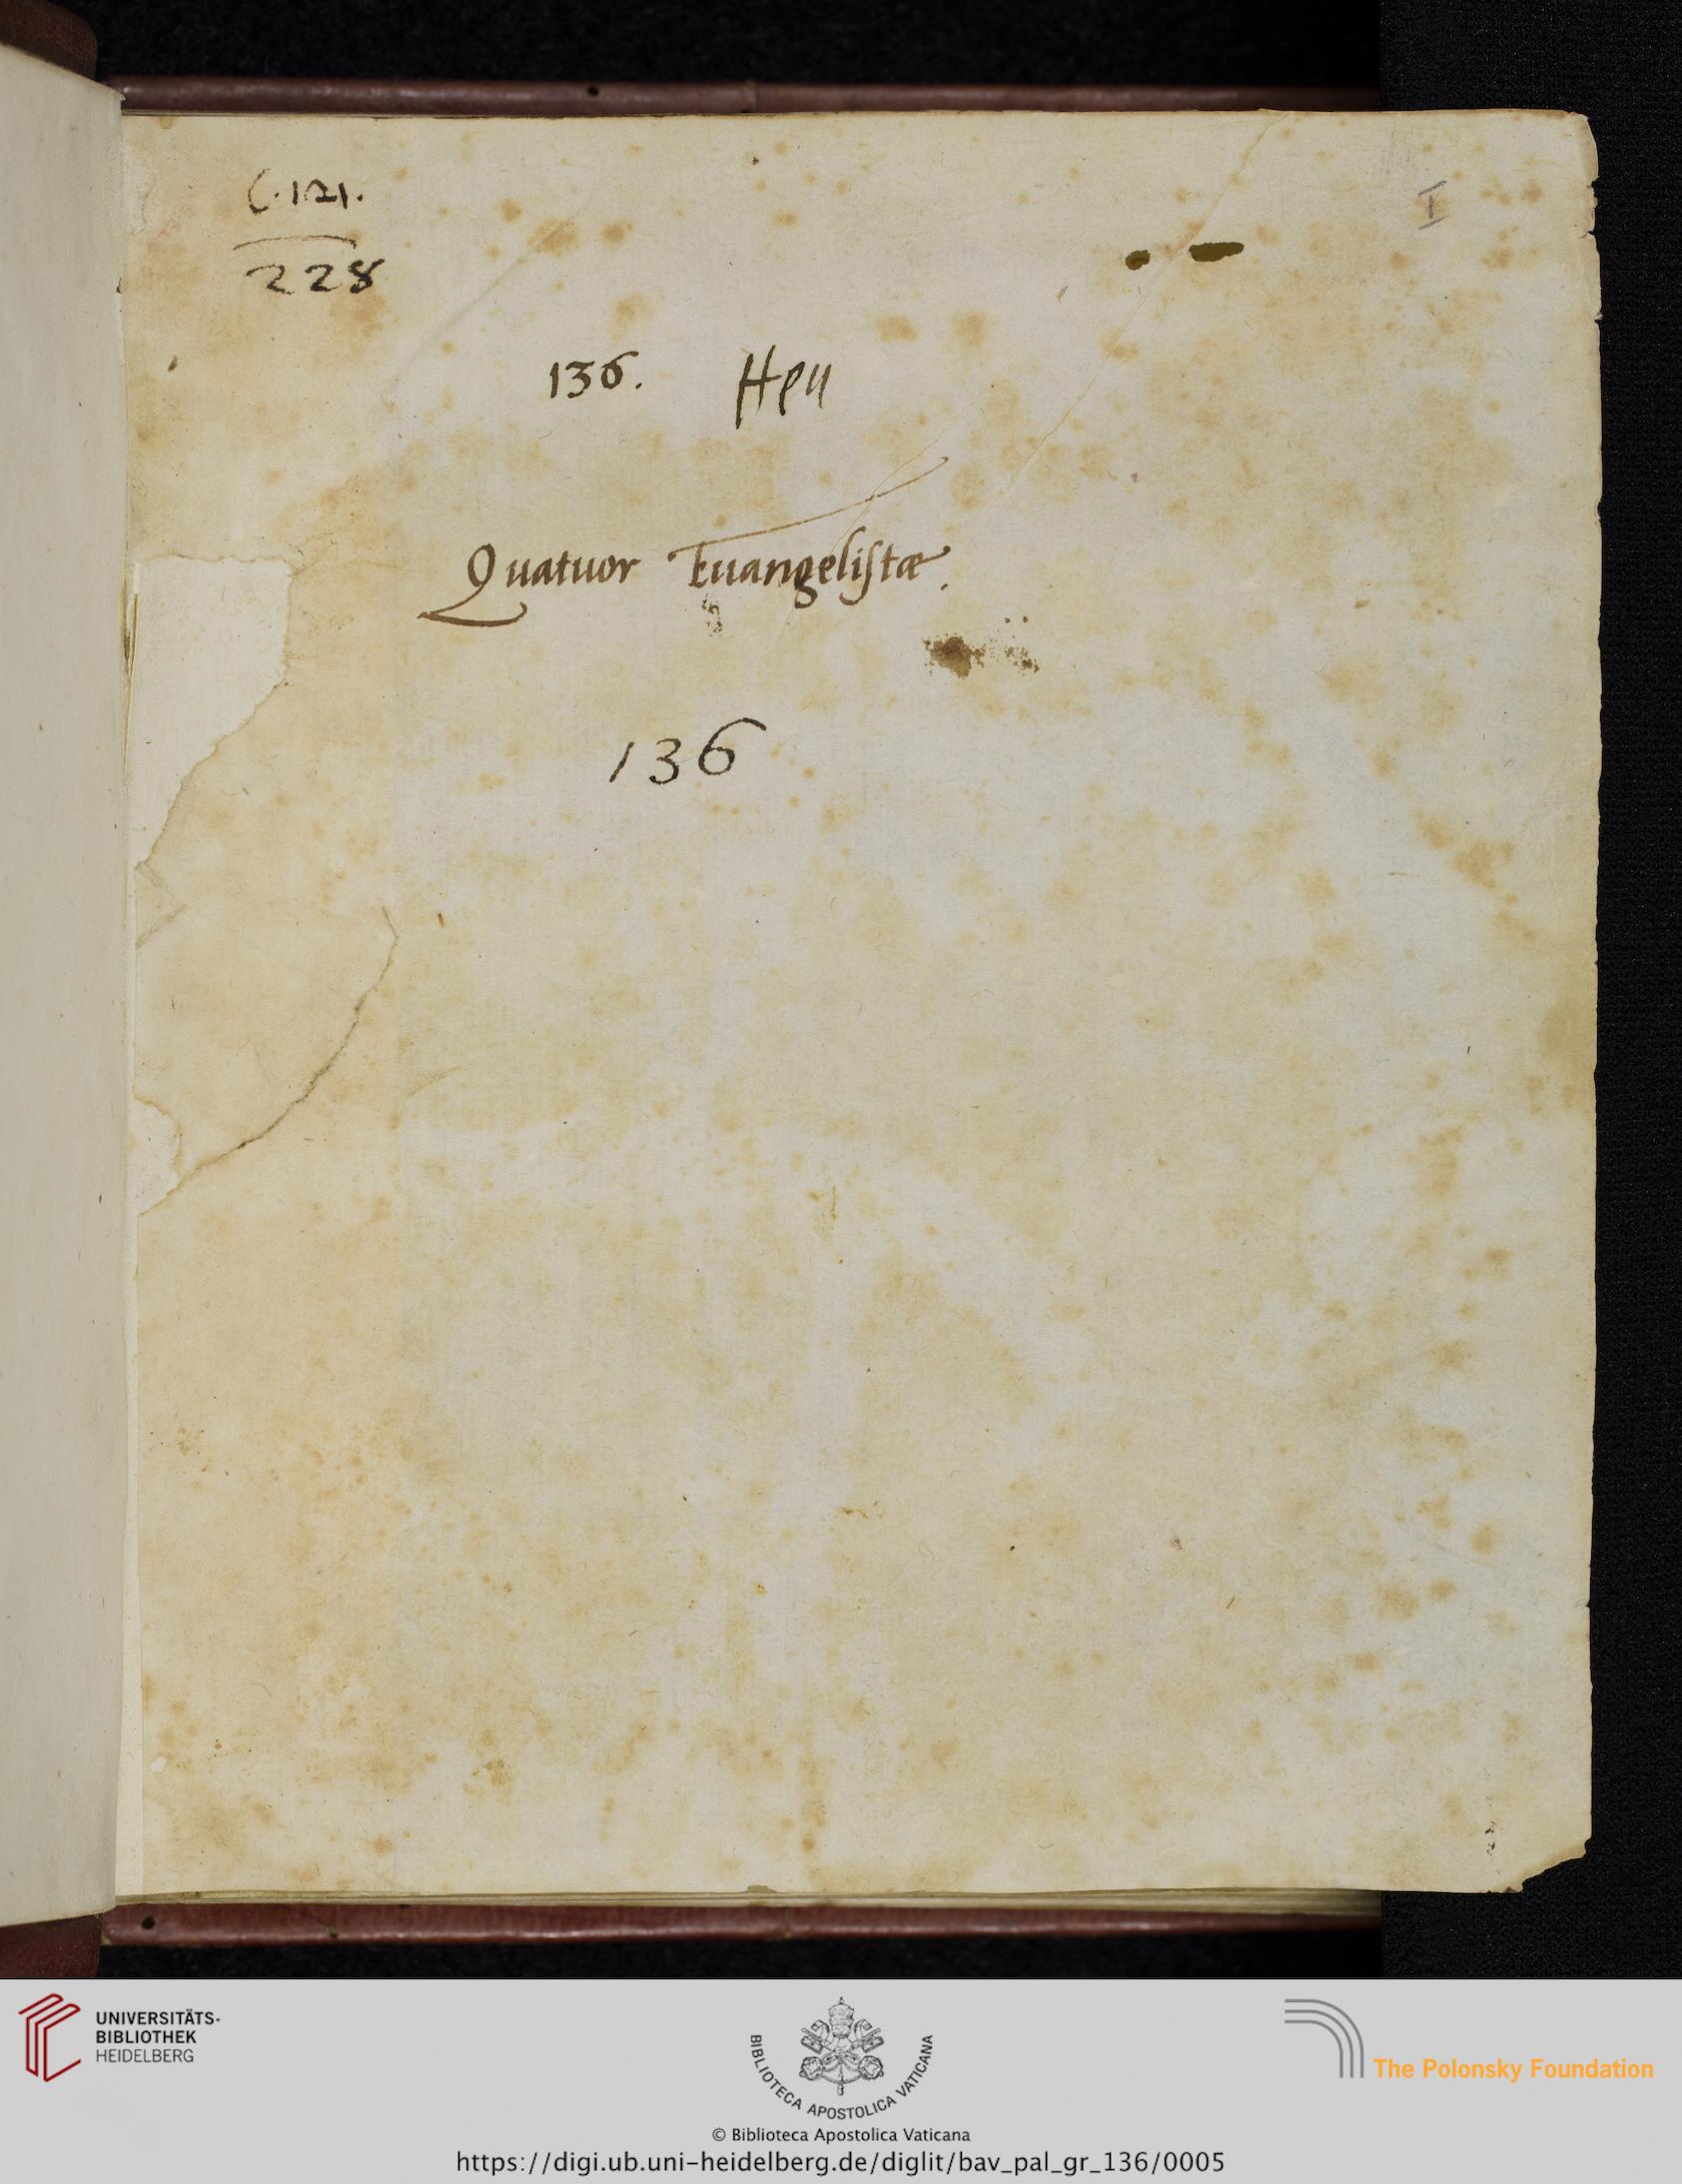 C. 121.
I
228
136. Hen
Quatuor Euangelistæ.
136
UNIVERSITÄTS-
BIBLIOTHEK
HEIDELBERG
BIBLIOTECA APOSTOLICA VATICANA
The Polonsky Foundation
© Biblioteca Apostolica Vaticana
https://digi.ub.uni-heidelberg.de/diglit/bav_pal_gr_136/0005